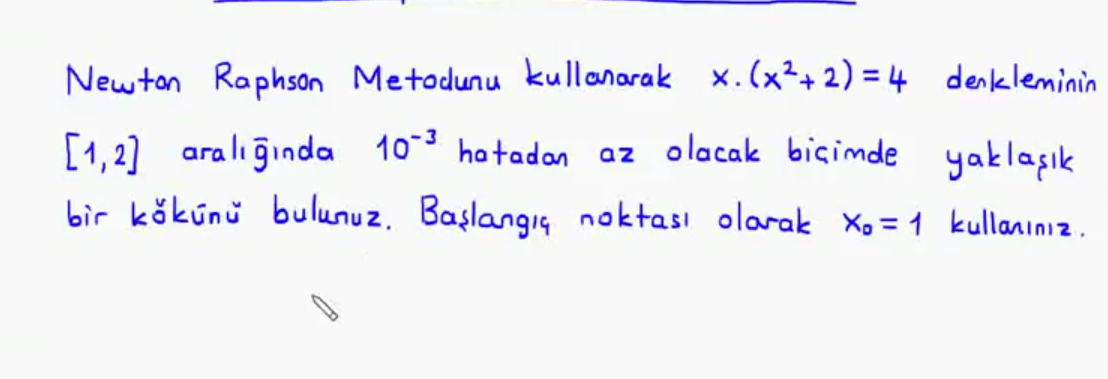 Newton Raphson Metodunu kullanarak x.(x²+2)=4 denkleminin
[1,2] aralığında 10⁻³ hatadan az olacak biçimde yaklaşık
bir kökünü bulunuz. Başlangıç noktası olarak x₀=1 kullanınız.